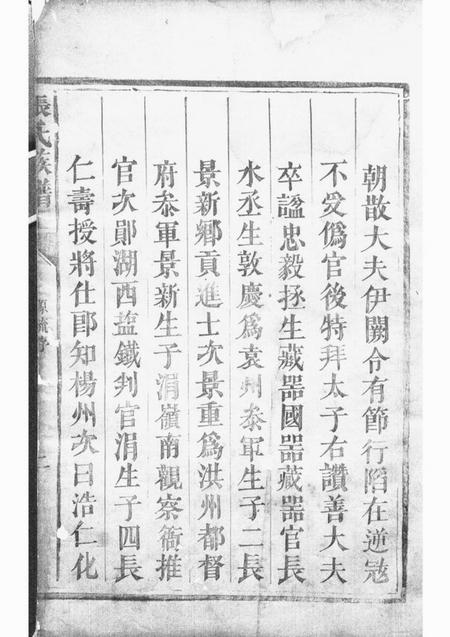 朝散大夫伊闕令有節行陷在逆冦
不受僞官後特拜太子右讚善大夫
卒諡忠毅拯生藏器國器藏器官長
水丞生敦慶爲袁州叅軍生子二長
景新鄉貢進士次景重爲洪州都督
府叅軍景新生子涓嶺南觀察衙推
官次郧湖西盐鐵判官涓生子四長
仁壽授將仕郎知楊州次曰浩仁化
張氏族譜
源流序